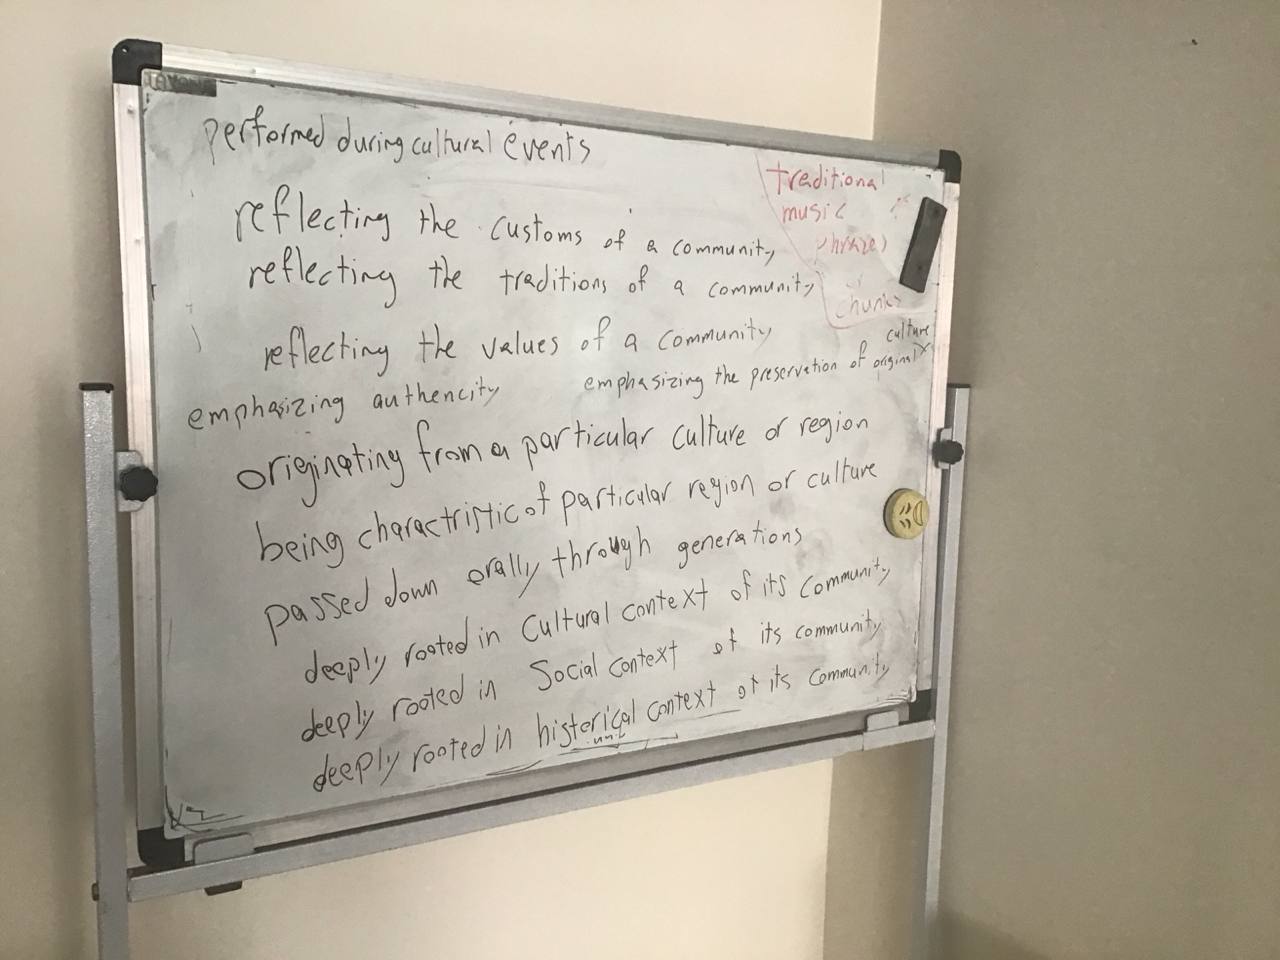 performed during cultural events
traditional
music
phrases
or
chunks
reflecting the customs of a community
reflecting the traditions of a community
reflecting the values of a community
emphasizing authencity
emphasizing the preservation of original culture
originating from a particular culture or region
being charactristic of particular region or culture
passed down orally through generations
deeply rooted in Cultural context of its community
deeply rooted in Social context of its community
deeply rooted in histerical context of its community